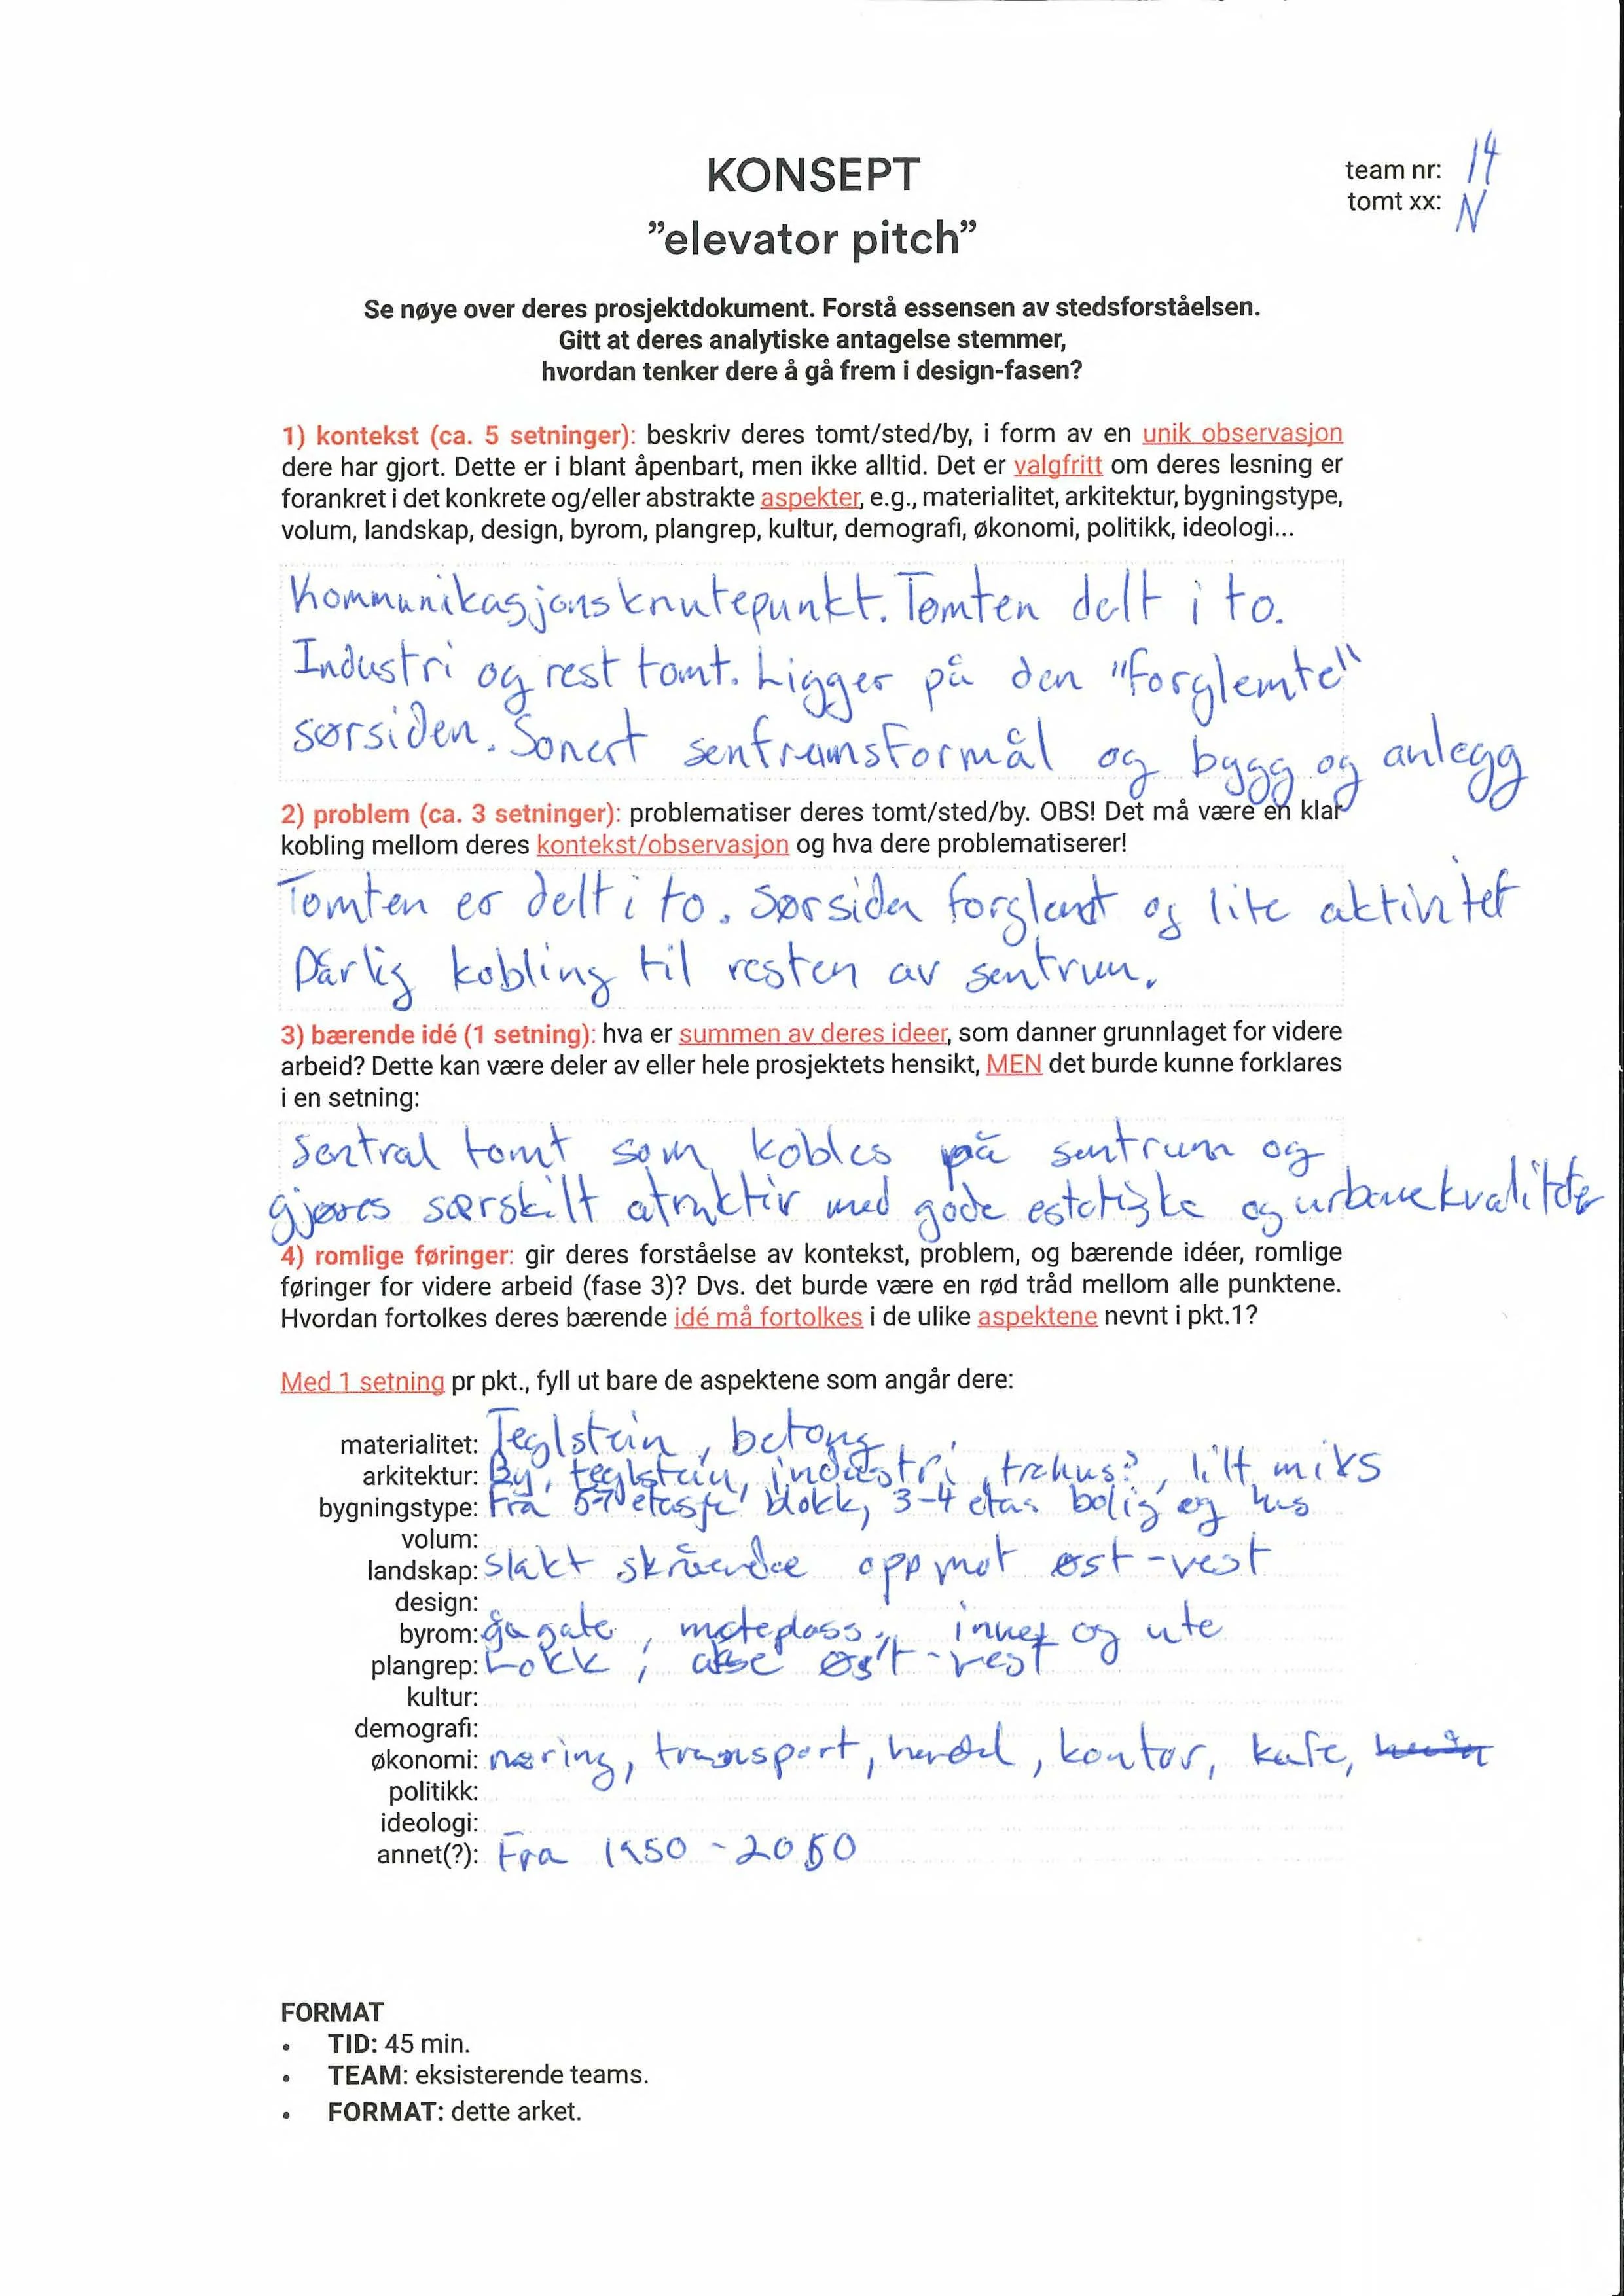 KONSEPT
"elevator pitch"
team nr: 14
tomt xx: N
Se nøye over deres prosjektdokument. Forstå essensen av stedsforståelsen.
Gitt at deres analytiske antagelse stemmer,
hvordan tenker dere å gå frem i design-fasen?
1) kontekst (ca. 5 setninger): beskriv deres tomt/sted/by, i form av en unik observasjon
dere har gjort. Dette er i blant åpenbart, men ikke alltid. Det er valgfritt om deres lesning er
forankret i det konkrete og/eller abstrakte aspekter, e.g., materialitet, arkitektur, bygningstype,
volum, landskap, design, byrom, plangrep, kultur, demografi, økonomi, politikk, ideologi...
Kommunikasjonsknutepunkt. Tomten delt i to.
Industri og rest tomt. Ligger på den "forglemte"
sørsiden. Sonert sentrumsformål og bygg og anlegg
2) problem (ca. 3 setninger): problematiser deres tomt/sted/by. OBS! Det må være en klar
kobling mellom deres kontekst/observasjon og hva dere problematiserer!
Tomten er delt i to. Sørsiden forglemt og lite aktivitet
Dårlig kobling til resten av sentrum.
3) bærende idé (1 setning): hva er summen av deres ideer, som danner grunnlaget for videre
arbeid? Dette kan være deler av eller hele prosjektets hensikt, MEN det burde kunne forklares
i en setning:
Sentral tomt som kobles på sentrum og
gjøres særskilt atraktiv med gode estetiske og urbane kvaliteter
4) romlige føringer: gir deres forståelse av kontekst, problem, og bærende idéer, romlige
føringer for videre arbeid (fase 3)? Dvs. det burde være en rød tråd mellom alle punktene.
Hvordan fortolkes deres bærende idé må fortolkes i de ulike aspektene nevnt i pkt.1?
Med 1 setning pr pkt., fyll ut bare de aspektene som angår dere:
materialitet: Teglstein, betong
arkitektur: By, teglstein, industri, trehus?, litt miks
bygningstype: Fra 5-7 etasje blokk, 3-4 etas. bolig og hus
volum:
landskap: slakt skrående opp mot øst-vest
design:
byrom: gågate, møteplass, inne og ute
plangrep: Lokk, akse øst-vest
kultur:
demografi:
økonomi: næring, transport, handel, kontor, kafe,
politikk:
ideologi:
annet(?): Fra 1950 - 2050
FORMAT
• TID: 45 min.
• TEAM: eksisterende teams.
• FORMAT: dette arket.